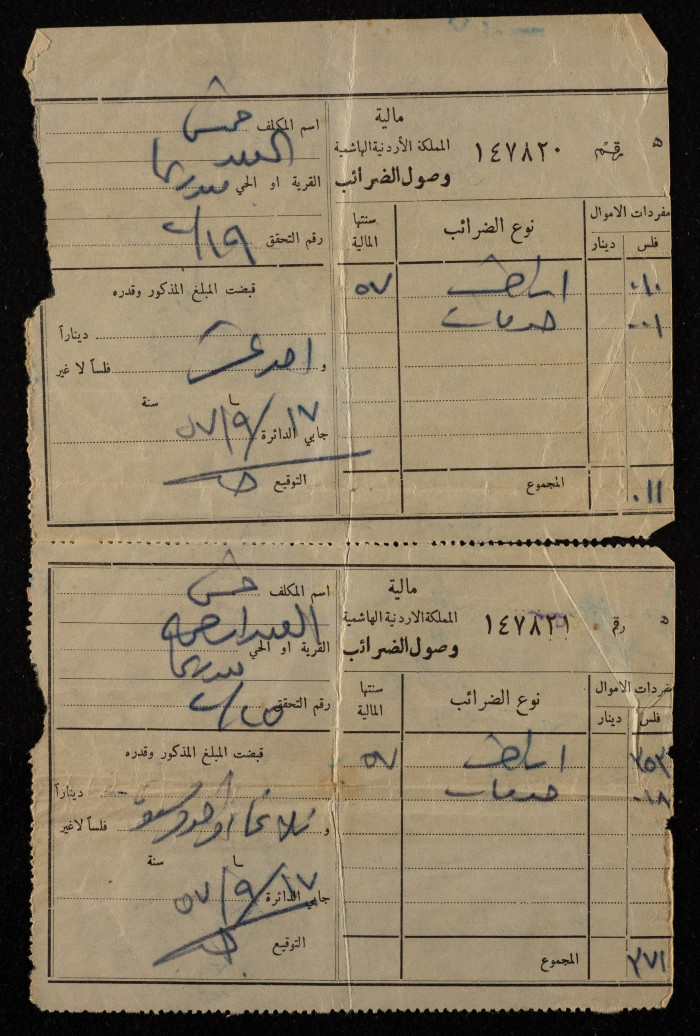 مالية
المملكة الأردنية الهاشمية
وصول الضرائب
ه رقم ١٤٧٨٢٠
اسم المكلف
العبد
القرية او الحي
رقم التحقق ١٩/
مفردات الاموال
فلس دينار
نوع الضرائب
سنتها المالية
٠١٠ ٥٧
٠٠١ خدمات
المجموع ٠١١
قبضت المبلغ المذكور وقدره
ديناراً
و احد عشر فلساً لا غير
سنة
جابي الدائرة ١٧/٩/٥٧
التوقيع
مالية
المملكة الاردنية الهاشمية
وصول الضرائب
ه رقم ١٤٧٨٢١
اسم المكلف
العبد
القرية او الحي
رقم التحقق
مفردات الاموال
فلس دينار
نوع الضرائب
سنتها المالية
٣٥٣ ٥٧
٠١٨ خدمات
المجموع ٣٧١
قبضت المبلغ المذكور وقدره
ديناراً
و فلساً لاغير
سنة
جابي الدائرة ١٧/٩/٥٧
التوقيع